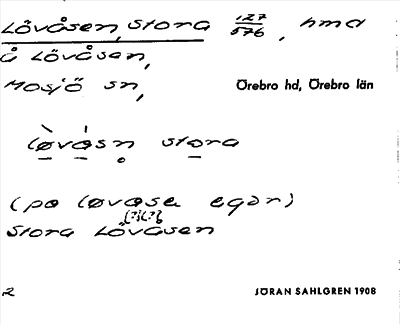 Lövåsen, Stora 127/576, hmd
å Lövåsen,
Mosjö sn, Örebro hd, Örebro län
lø̀vásn stora
(po løvasa egər)
(?)(?)
Stora Lövåsen
2 JÖRAN SAHLGREN 1908